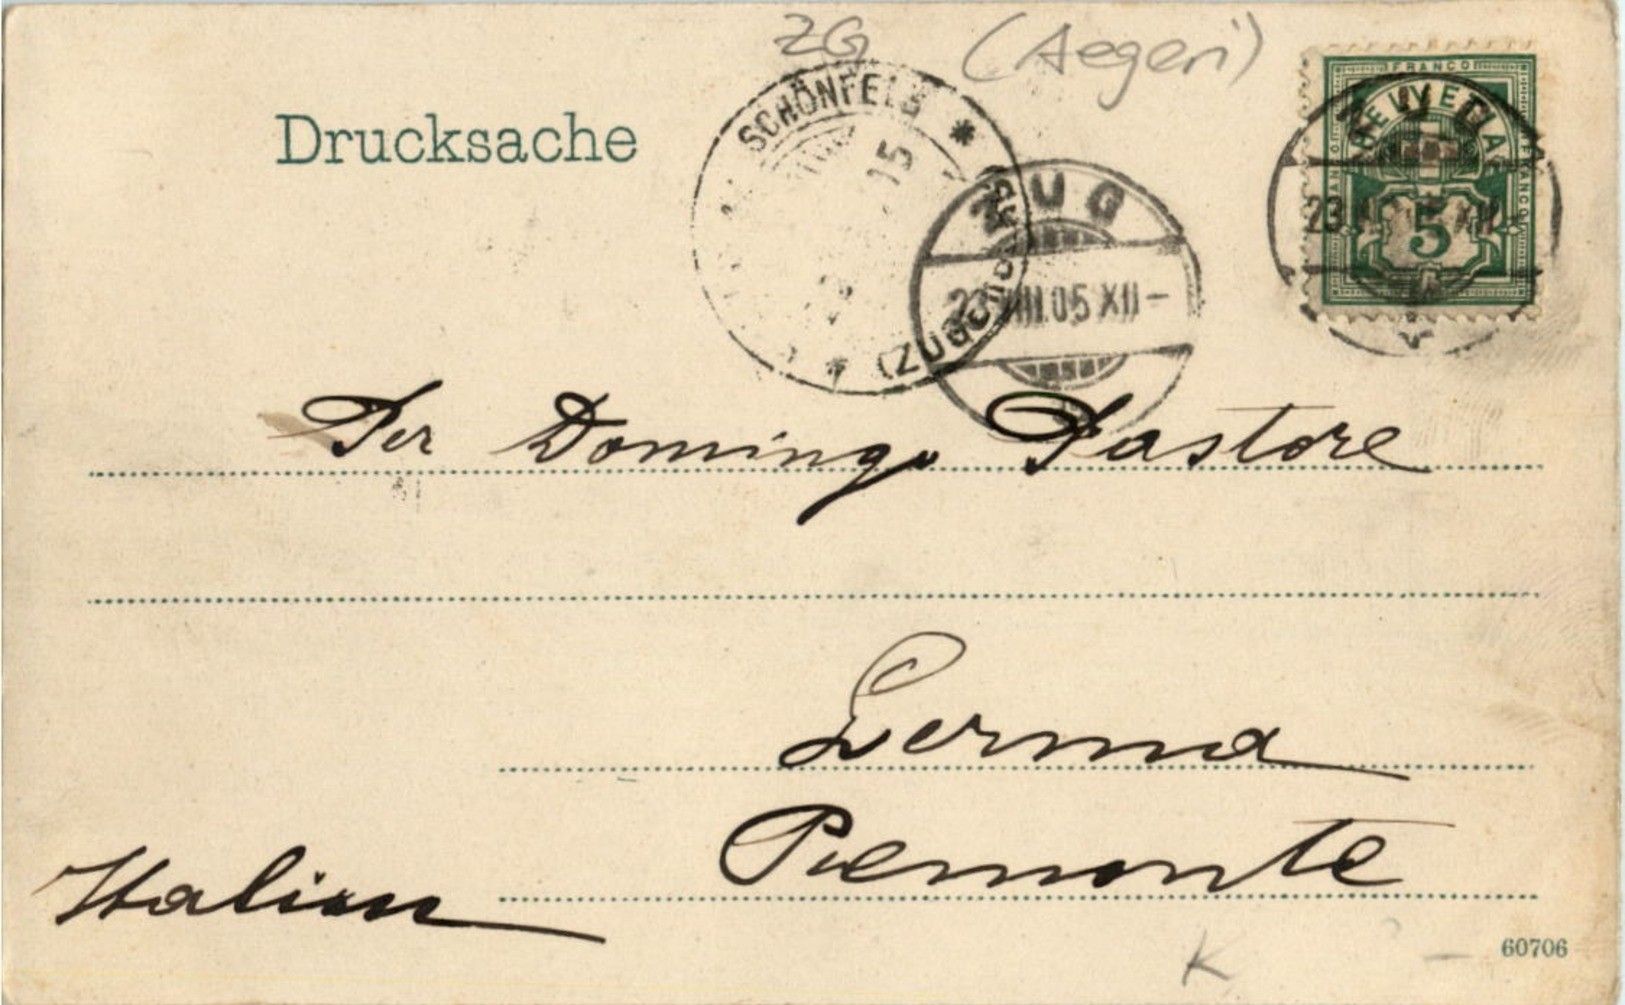 ZG (Aegeri)
FRANCO
HELVETIA
5
SCHÖNFELS
15
(ZUGERBERG)
ZUG
23.VIII.05 XII-
Drucksache
Per Domingo Pastore
Lerma
Piemonte
Italien
K
60706